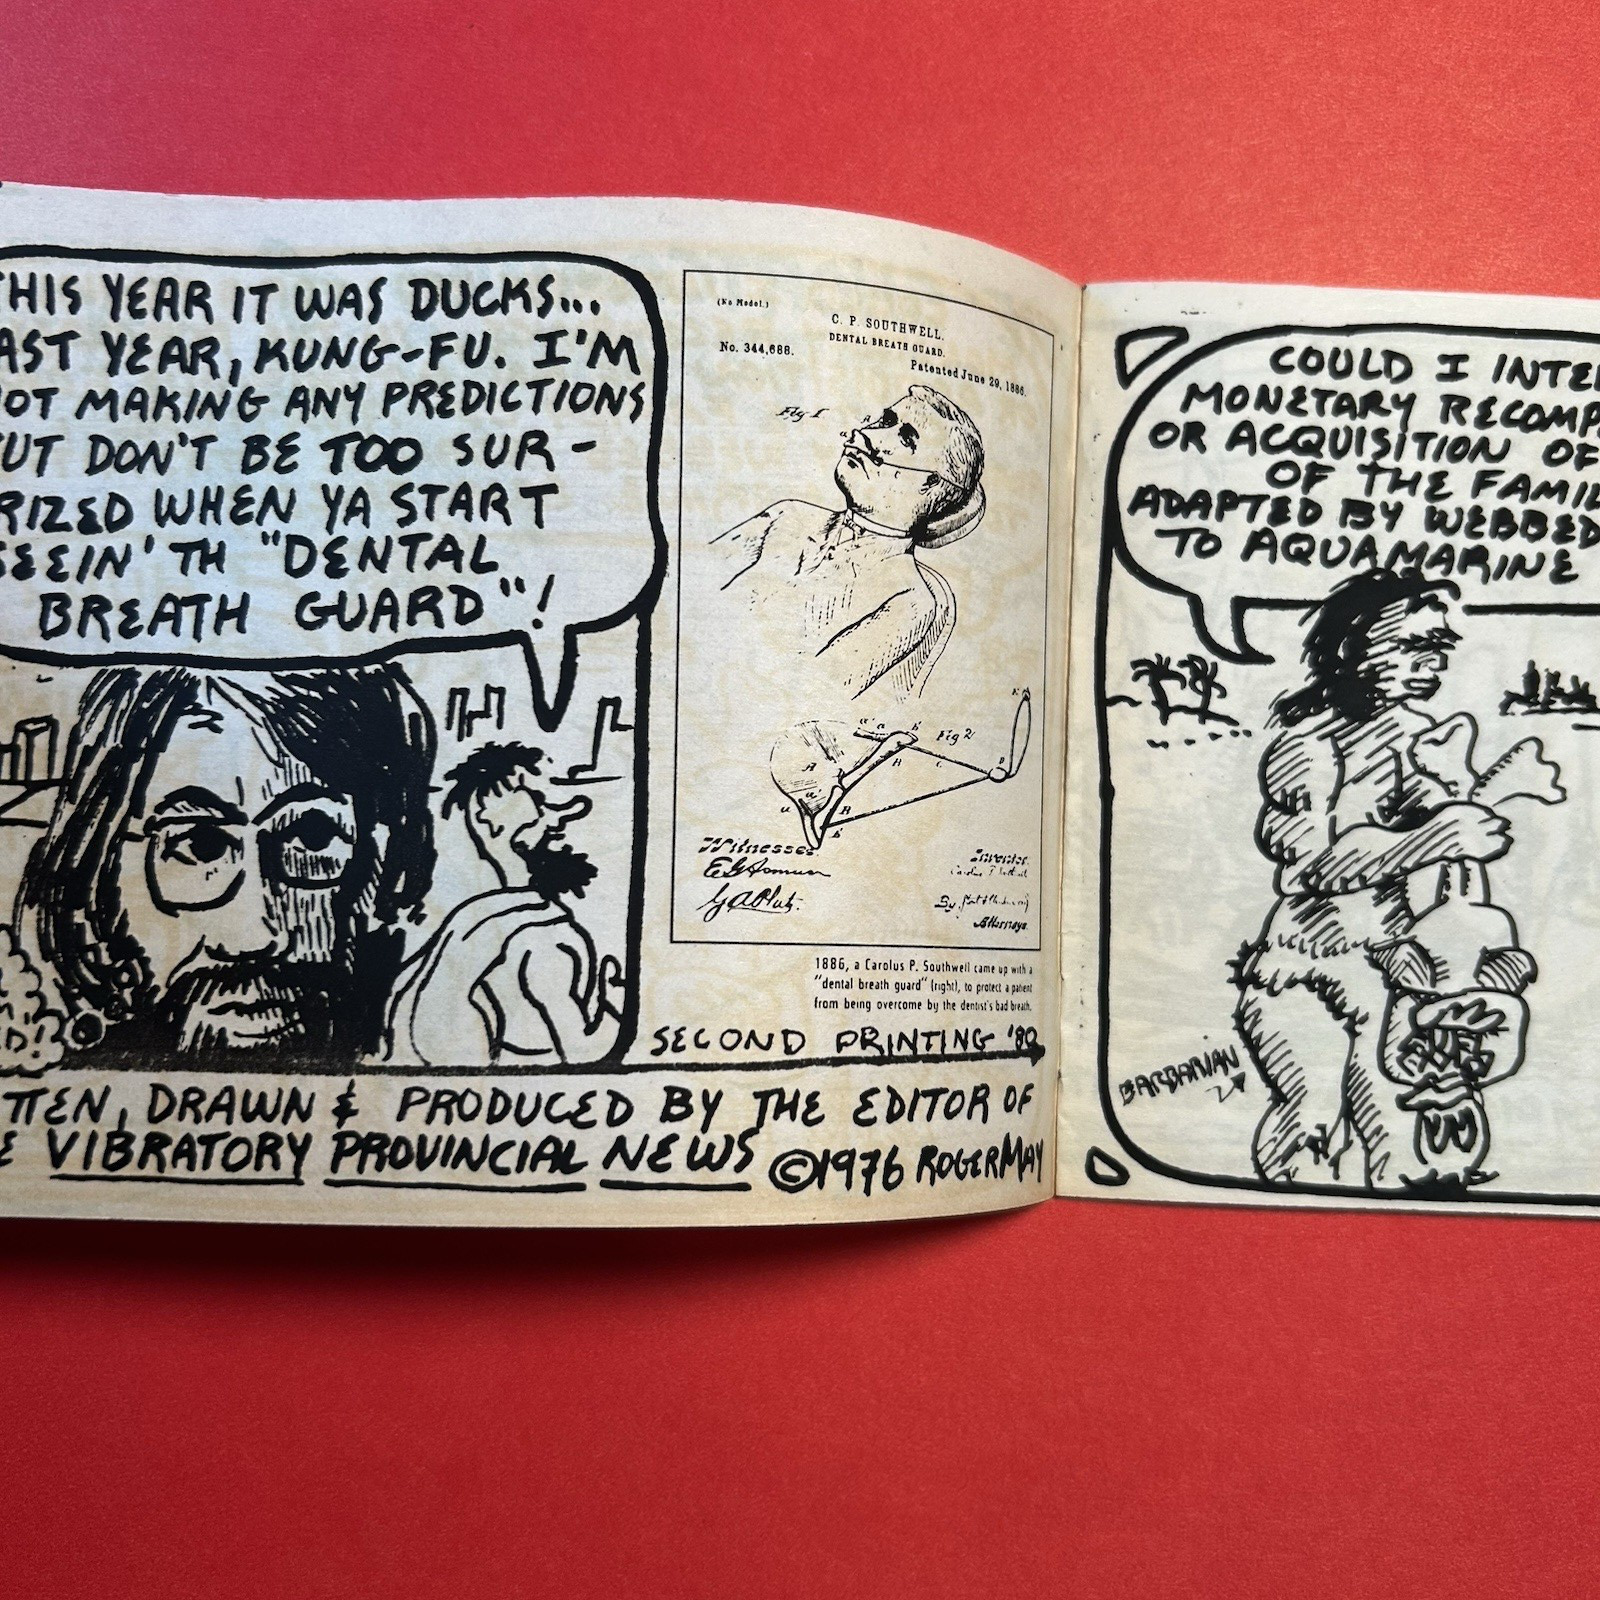 THIS YEAR IT WAS DUCKS...
AST YEAR, KUNG-FU. I'M
OT MAKING ANY PREDICTIONS
UT DON'T BE TOO SUR-
RIZED WHEN YA START
SEEIN' TH "DENTAL
BREATH GUARD"!
D!
(No Model.)
C. P. SOUTHWELL.
DENTAL BREATH GUARD.
No. 344,688.
Patented June 29, 1886.
Fig 1
Fig 2
Witnesses
Inventor.
By
Attorneys
1886, a Carolus P. Southwell came up with a
"dental breath guard" (right), to protect a patient
from being overcome by the dentist's bad breath.
SECOND PRINTING '80
TTEN, DRAWN & PRODUCED BY THE EDITOR OF
E VIBRATORY PROVINCIAL NEWS ©1976 ROGER MAY
COULD I INTE
MONETARY RECOMP
OR ACQUISITION OF
OF THE FAMIL
ADAPTED BY WEBBED
TO AQUAMARINE
BARBARIAN